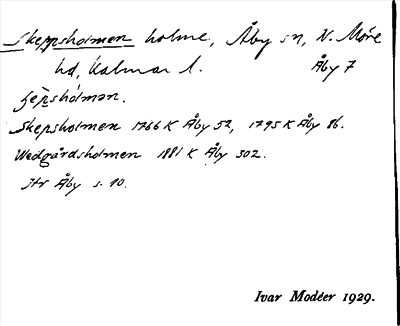 Skeppsholmen holme, Åby sn, N. Möre
hd, Kalmar l. Åby 7
Skepsholmen 1766 K Åby 52, 1795 K Åby 86.
Wedgårdsholmen 1881 K Åby 302.
Str Åby s. 10.
Ivar Modéer 1929.